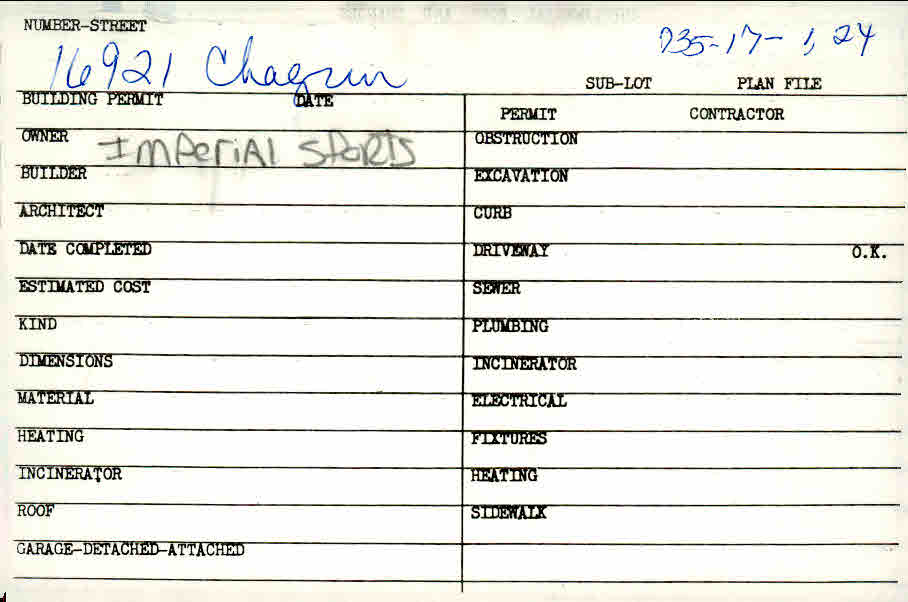 NUMBER-STREET
735-17-1,24
16921 Chagrin
SUB-LOT PLAN FILE
BUILDING PERMIT DATE
PERMIT CONTRACTOR
OWNER Imperial Sports
OBSTRUCTION
BUILDER
EXCAVATION
ARCHITECT
CURB
DATE COMPLETED
DRIVEWAY O.K.
ESTIMATED COST
SEWER
KIND
PLUMBING
DIMENSIONS
INCINERATOR
MATERIAL
ELECTRICAL
HEATING
FIXTURES
INCINERATOR
HEATING
ROOF
SIDEWALK
GARAGE-DETACHED-ATTACHED